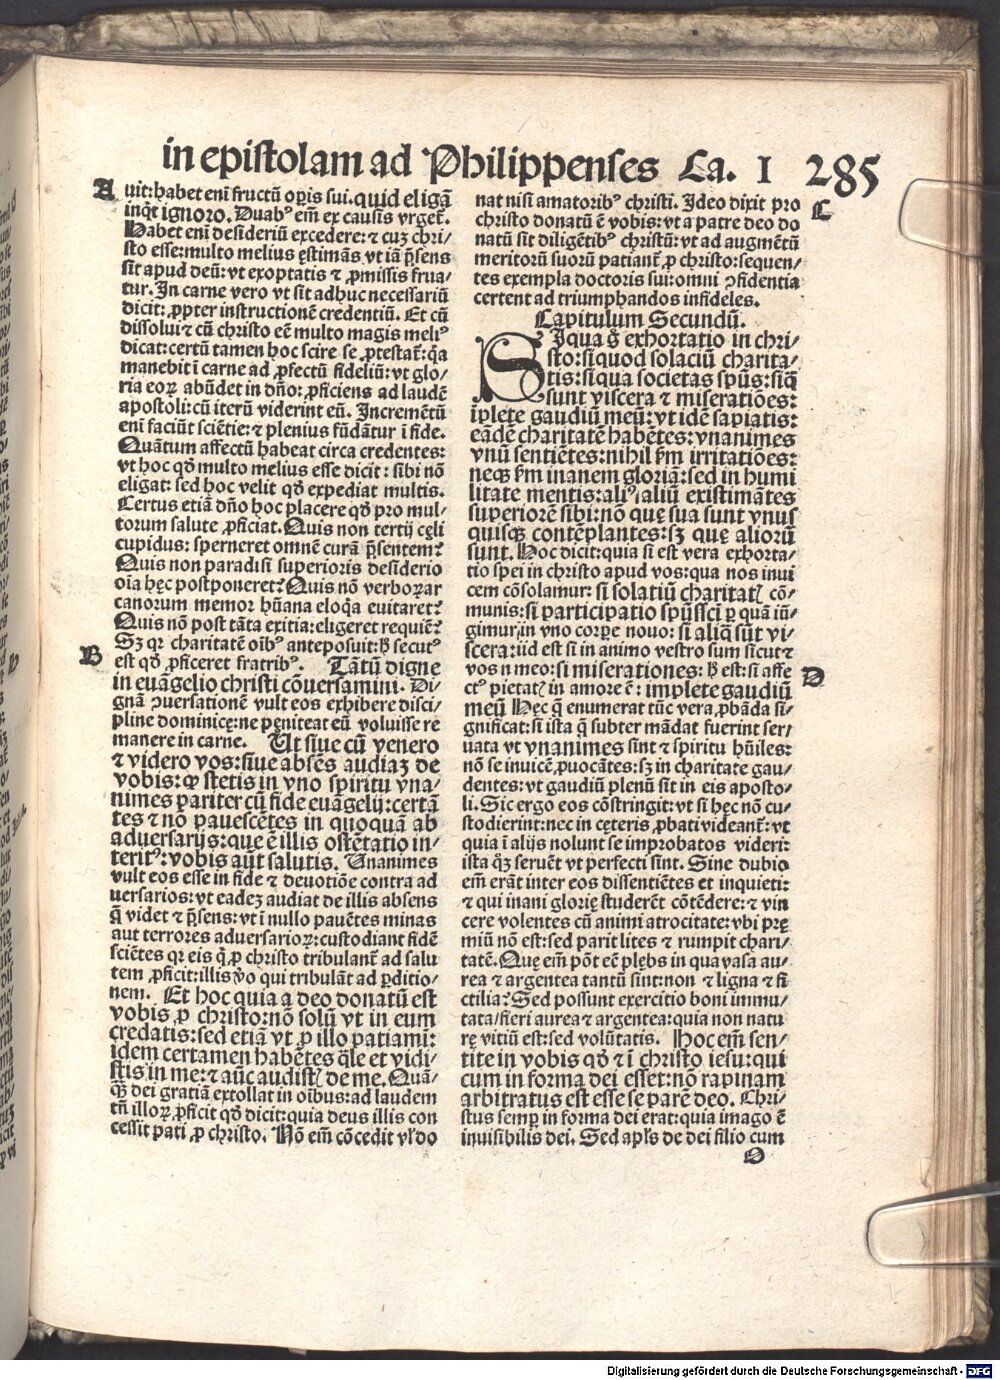 in epistolam ad Philippenses Ca. I 285
A
uit: habet enī fructū oꝑis sui. quid eligā
inq̄t ignoro. Duabꝰ em̄ ex causis vrget.
Habet enī desideriū excedere: ⁊ cuȝ chri/
sto esse: multo melius ęstimās vt iā p̄sens
sit apud deū: vt exoptatis ⁊ ꝓmissis frua/
tur. In carne vero vt sit adhuc necessariū
dicit: ꝓpter instructionē credentiū. Et cū
dissolui ⁊ cū christo eē multo magis meliꝰ
dicat: certū tamen hoc scire se ꝓtestat̄: q̇a
manebit ī carne ad ꝓfectū fideliū: vt glo/
ria eoꝝ abūdet in dn̄o: ꝓficiens ad laudē
apostoli: cū iterū viderint eū. Incremētū
enī faciūt sciētie: ⁊ plenius fūdātur ī fide.
Quātum affectū habeat circa credentes:
vt hoc qd̄ multo melius esse dicit: sibi nō
eligat: sed hoc velit qd̄ expediat multis.
Certus etiā dn̄o hoc placere qd̄ pro mul/
torum salute ꝓficiat. Quis non tertij cęli
cupidus: sperneret omnē curā p̄sentem?
Quis non paradisi superioris desiderio
oīa hęc postponeret? Quis nō verboꝝ ar
canorum memor hūana eloq̇a euitaret?
Quis nō post tāta exitia: eligeret requiē?
Sȝ qꝛ charitatē oībꝰ anteposuit: h̄ secutꝰ
B
est qd̄ ꝓficeret fratribꝰ. Tātū digne
in euāgelio christi cōuersamini. Di/
gnā ꝯuersationē vult eos exhibere disci/
pline dominicę: ne pęniteat eū voluisse re
manere in carne. Ut siue cū venero
⁊ videro vos: siue absēs audiaȝ de
vobis: ꝙ stetis in vno spiritu vna/
nimes pariter cū fide euāgelij: certā
tes ⁊ nō pauescētes in quoquā ab
aduersarijs: que ē illis ostētatio in/
teritꝰ: vobis aūt salutis. Unanimes
vult eos esse in fide ⁊ deuotiōe contra ad
uersarios: vt eadeȝ audiat de illis absens
q̄ videt ⁊ p̄sens: vt ī nullo pauētes minas
aut terrores aduersarioꝝ: custodiant fidē
sciētes qꝛ eis q̇ ꝓ christo tribulant̄ ad salu
tem ꝓficit: illis v̄o qui tribulāt ad ꝑditio/
nem. Et hoc quia a deo donatū est
vobis ꝓ christo: nō solū vt in eum
credatis: sed etiā vt ꝓ illo patiami:
idem certamen habētes q̄le et vidi/
stis in me: ⁊ aūc audistꝭ de me. Quā/
qꝫ dei gratiā extollat in oībus: ad laudem
tn̄ illoꝝ ꝓficit qd̄ dicit: quia deus illis con
cessit pati ꝓ christo. Nō em̄ cōcedit vl̄ do
nat nisi amatoribꝰ christi. Ideo dixit pro
C
christo donatū ē vobis: vt a patre deo do
natū sit diligētibꝰ christū: vt ad augmētū
meritorū suorū patiant̄ ꝓ christo: sequen/
tes exempla doctoris sui: omni ꝯfidentia
certent ad triumphandos infideles.
Capitulum Secundū.
SIqua g̊ exhortatio in chri/
sto: si quod solaciū charita/
tis: si qua societas spūs: siq̄
sunt viscera ⁊ miseratiōes:
īplete gaudiū meū: vt idē sapiatis:
eādē charitatē habētes: vnanimes
vnū sentiētes: nihil ẜm irritatiōes:
neqꝫ ẜm inanem gloriā: sed in humi
litate mentis: aliꝰ aliū existimātes
superiorē sibi: nō quę sua sunt vnus
quisqꝫ contēplantes: sȝ quę aliorū
sunt. Hoc dicit: quia si est vera exhorta/
tio spei in christo apud vos: qua nos inui
cem cōsolamur: si solatiū charitatꝭ cō/
munis: si participatio spūssci ꝑ quā iū/
gimur, in vno corꝑe nouo: si aliq̄ sūt vi/
scera: iid est si in animo vestro sum sicut ⁊
D
vos n meo: si miserationes: h̄ est: si affe
ctꝰ pietatꝭ in amore ē: implete gaudiū
meū Hęc q̄ enumerat tūc vera, ꝓbāda si/
gnificat: si ista q̄ subter mādat fuerint ser/
uata vt vnanimes sint ⁊ spiritu hūiles:
nō se inuicē ꝓuocātes: sȝ in charitate gau/
dentes: vt gaudiū plenū sit in eis aposto/
li. Sic ergo eos cōstringit: vt si hęc nō cu/
stodierint: nec in cęteris ꝓbati videant̄: vt
quia ī alijs nolunt se improbatos videri:
ista qꝫ seruēt vt perfecti sint. Sine dubio
em̄ erāt inter eos dissentiētes et inquieti:
⁊ qui inani glorię studerēt cōtēdere: ⁊ vin
cere volentes cū animi atrocitate: vbi prę
miū nō est: sed parit lites ⁊ rumpit chari/
tatē. Quę em̄ pōt eē plębs in qua vasa au/
rea ⁊ argentea tantū sint: non ⁊ ligna ⁊ fi
ctilia? Sed possunt exercitio boni immu/
tata fieri aurea ⁊ argentea: quia non natu
rę vitiū est: sed volūtatis. Hoc em̄ sen/
tite in vobis qd̄ ⁊ ī christo iesu: qui
cum in forma dei esset: nō rapinam
arbitratus est esse se parē deo. Chri/
stus semꝑ in forma dei erat: quia imago ē
inuisibilis dei. Sed apl̄s de dei filio cum
O
Digitalisierung gefördert durch die Deutsche Forschungsgemeinschaft - DFG